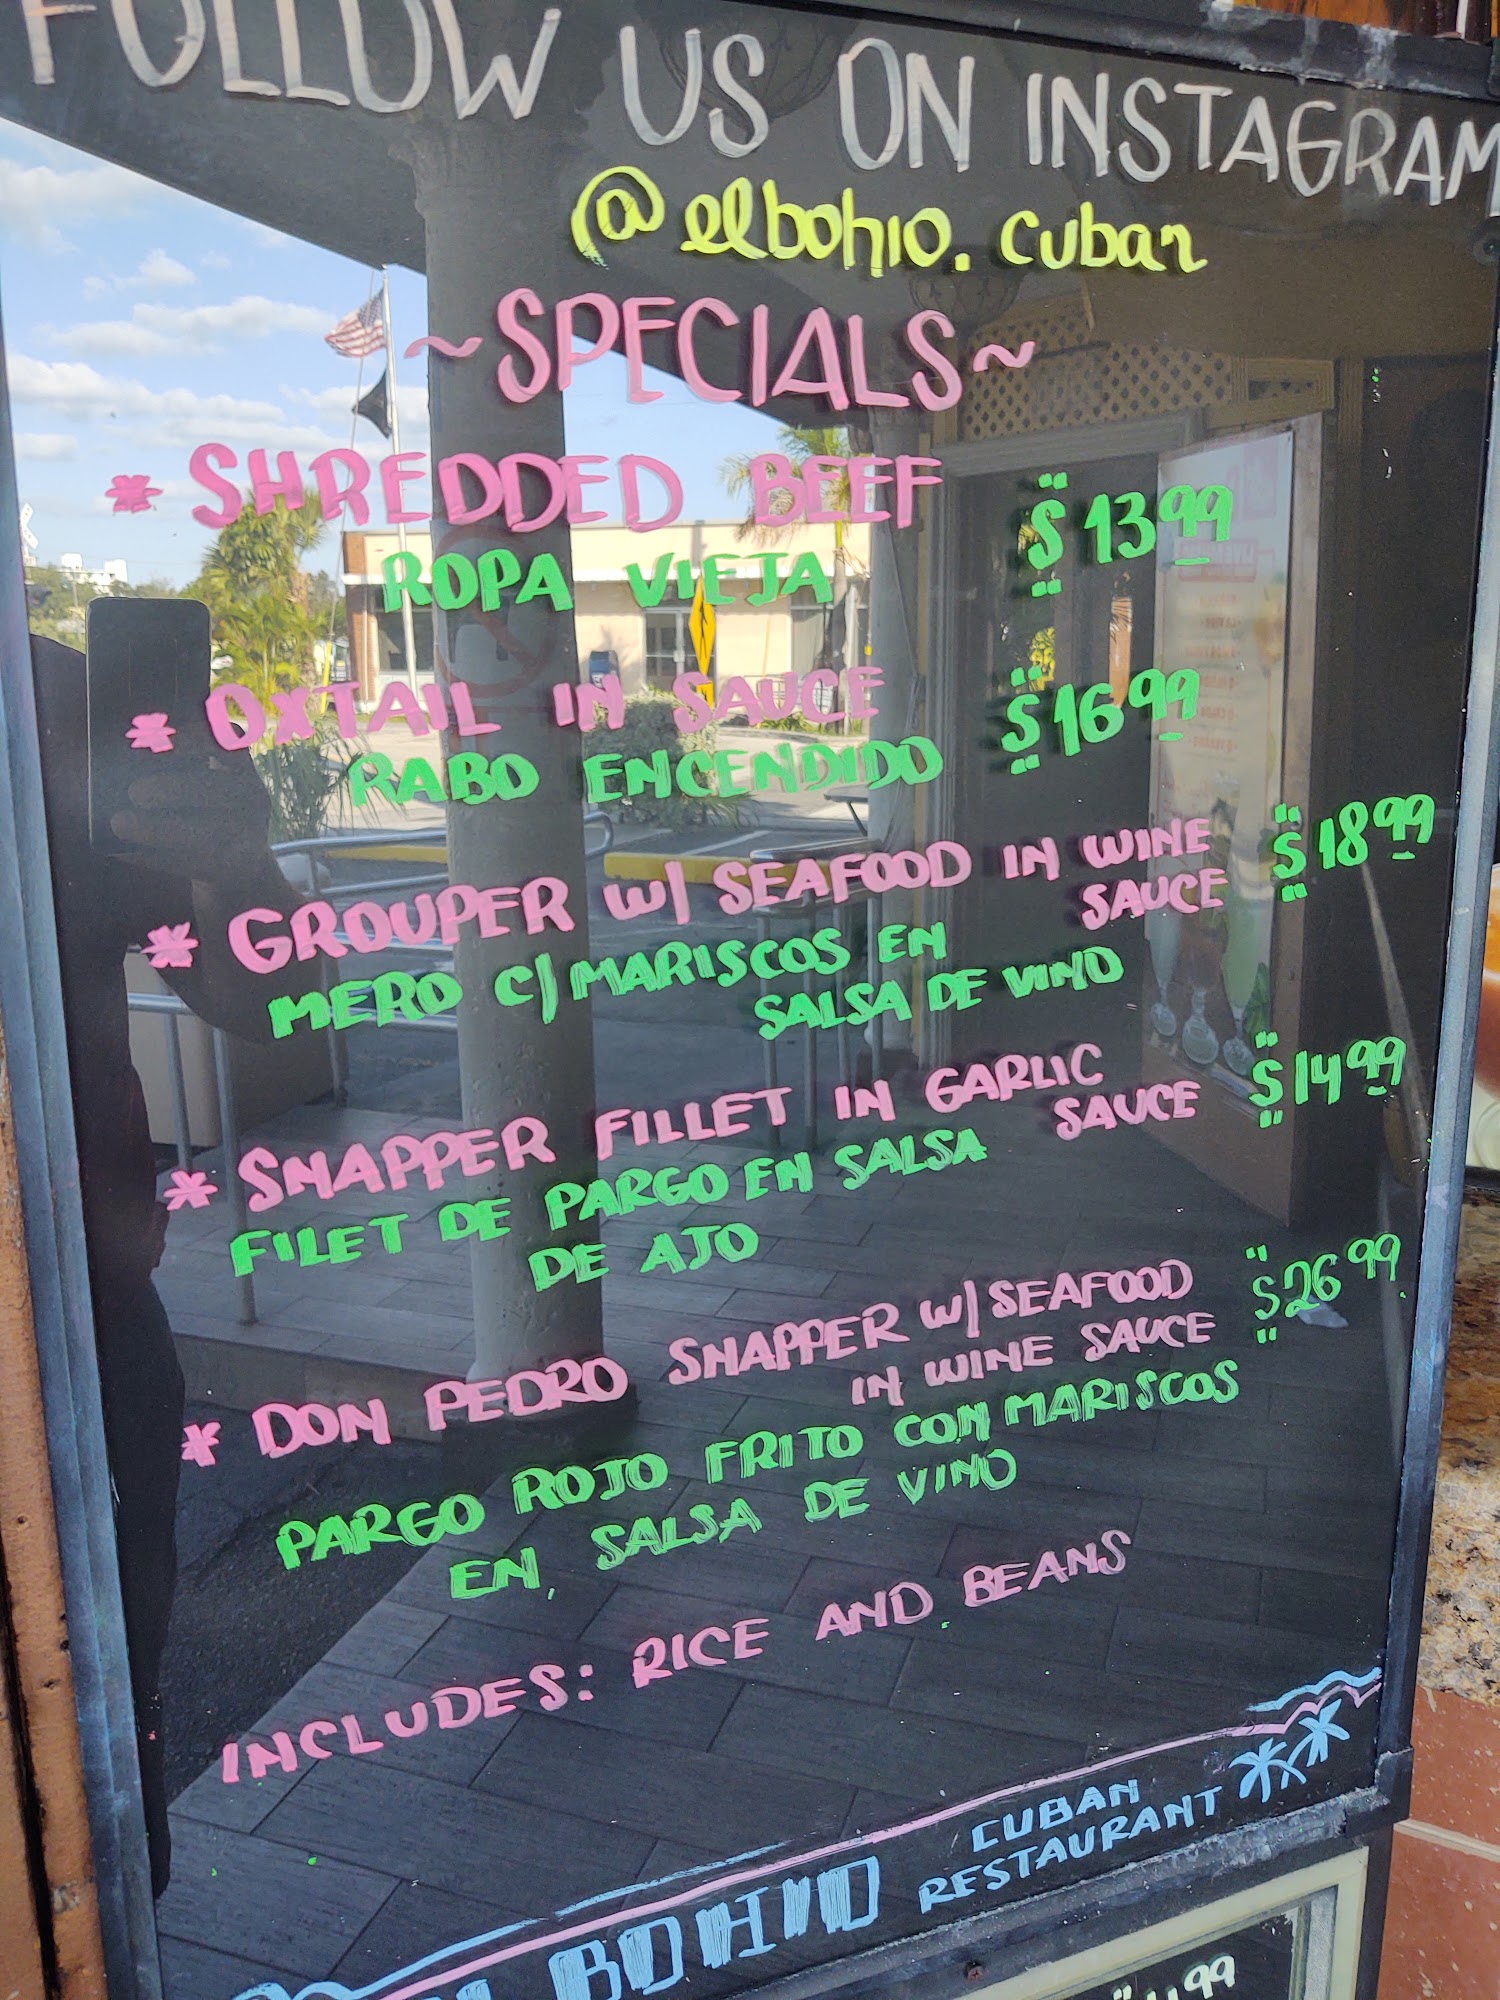 FOLLOW US ON INSTAGRAM
@elbohio.cuban
~SPECIALS~
* SHREDDED BEEF $13.99
ROPA VIEJA
* OXTAIL IN SAUCE $16.99
RABO ENCENDIDO
* GROUPER W/ SEAFOOD IN WINE $18.99
SAUCE
MERO C/ MARISCOS EN
SALSA DE VINO
* SNAPPER FILLET IN GARLIC $14.99
SAUCE
FILET DE PARGO EN SALSA
DE AJO
* DON PEDRO SNAPPER W/ SEAFOOD $26.99
IN WINE SAUCE
PARGO ROJO FRITO CON MARISCOS
EN SALSA DE VINO
INCLUDES: RICE AND BEANS
BOHIO CUBAN
RESTAURANT